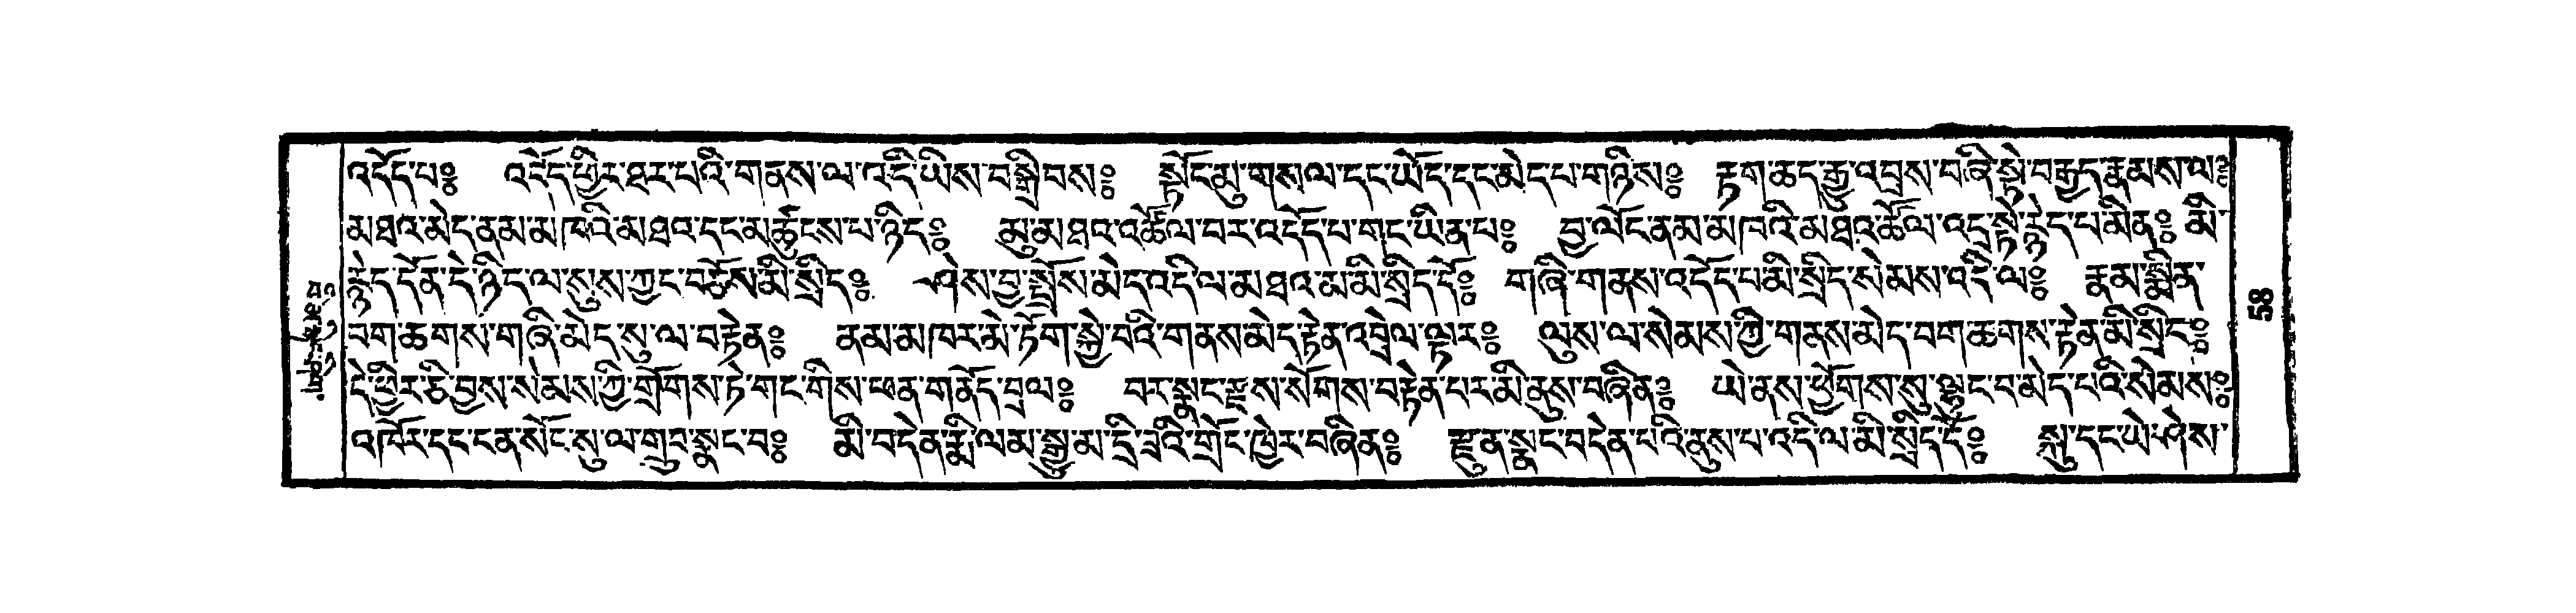 འདོད་པ༔ འདོད་ཕྱིར་ཐར་པའི་གནས་ལ་འདི་ཡིས་བསྒྲིབས༔ སྟོང་མུ་གསལ་དང་ཡོད་དང་མེད་པ་གཉིས༔ རྟག་ཆད་རྒྱུ་འབྲས་བཞི་སྟེ་བརྒྱད་རྣམས་ལ༔
མཐའ་མེད་ནམ་མཁའི་མཐའ་དང་མཚུངས་པ་ཉིད༔ མུ་མཐའ་འཚོལ་བར་འདོད་པ་གང་ཡིན་པ༔ བྱ་ལོང་ནམ་མཁའི་མཐའ་ཚོལ་འདྲ་སྟེ་རྙེད་པ་མིན༔ མི་
རྙེད་དོན་དེ་ཉིད་ལ་སུས་ཀྱང་བཅོས་མི་སྲིད༔ ཤེས་བྱ་སྤྲོས་མེད་འདི་ལ་མཐའ་མ་མི་སྲིད་དོ༔ གཞི་གནས་འདོད་པ་མི་སྲིད་སེམས་འདི་ལ༔ རྣམ་སྨིན་
བག་ཆགས་གཞི་མེད་སུ་ལ་བརྟེན༔ ནམ་མཁར་མེ་ཏོག་སྐྱེ་བའི་གནས་མེད་རྟེན་འབྲེལ་ལྟར༔ ལུས་ལ་སེམས་ཀྱི་གནས་མེད་བག་ཆགས་རྟེན་མི་སྲིད༔
དེ་ཕྱིར་ཅི་བྱས་སེམས་ཀྱི་གྲོགས་ཏེ་གང་གིས་ཕན་གནོད་བྲལ༔ བར་སྣང་རྫས་སོགས་བརྟེན་པར་མི་ནུས་བཞིན༔ ཡེ་ནས་ཕྱོགས་སུ་ལྷུང་བ་མེད་པའི་སེམས༔
འཁོར་དང་ངན་སོང་སུ་ལ་གྲུབ་སྣང་བ༔ མི་བདེན་རྨི་ལམ་སྒྱུ་མ་དྲི་ཟའི་གྲོང་ཁྱེར་བཞིན༔ རྫུན་སྣང་བདེན་པའི་ནུས་པ་འདི་ལ་མི་སྲིད་དོ༔ སྐུ་དང་ཡེ་ཤེས་